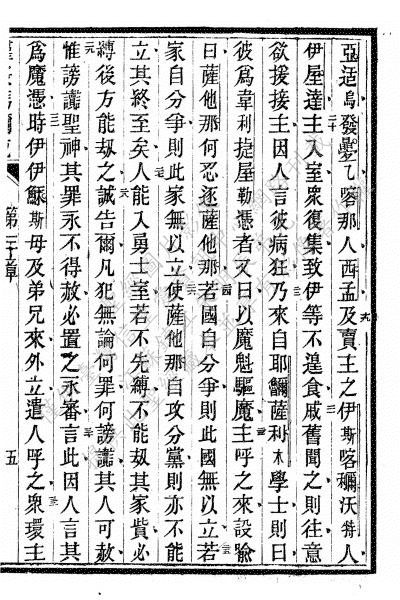 亞适烏發㬪乙喀那人西孟及賣主之伊斯喀穪沃特人
伊屋達主入室衆復集致伊等不遑食戚舊聞之則往意
欲援接主因人言彼病狂乃來自耶穪薩利木學士則曰
彼爲韋利捷屋勒憑者又曰以魔魁驅魔主呼之來設喩
曰薩他那何忍逐薩他那若國自分爭則此國無以立若
家自分爭則此家無以立使薩他那自攻分黨則亦不能
立其終至矣人能入勇士室若不先縛不能刼其家貲必
縛後方能刼之誠告爾凡犯無論何罪何謗讟其人可赦
惟謗讟聖神其罪永不得赦必置之永審言此因人言其
爲魔憑時伊伊穌斯母及弟兄來外立遣人呼之衆環主
第三章
五